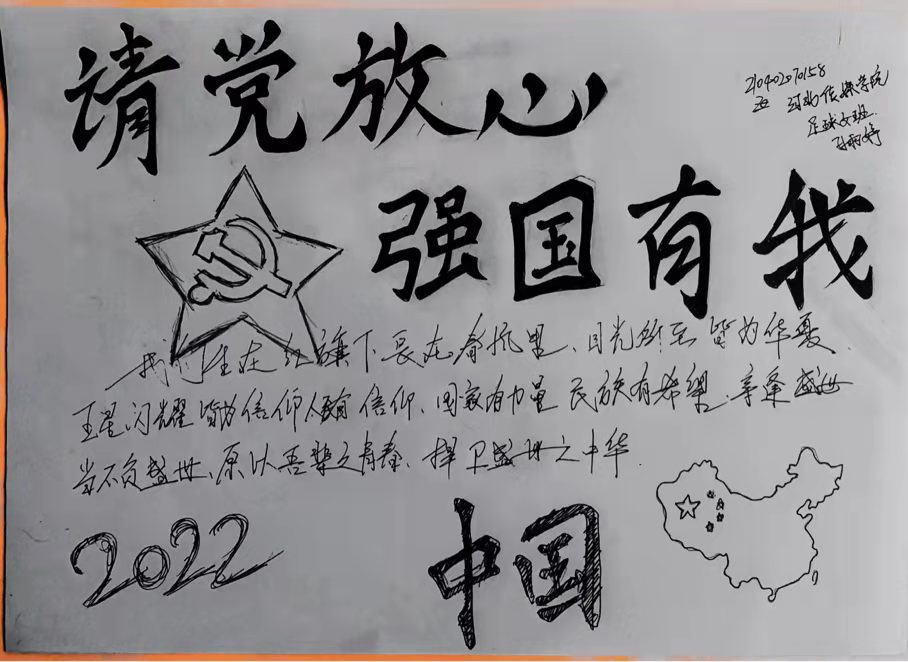 请党放心
210402070158
河北传媒学院
足球女班
孙雨婷
强国有我
我们生在红旗下长在春风里、目光所至皆为华夏
五星闪耀皆为信仰人有信仰、国家有力量 民族有希望 幸逢盛世
当不负盛世、原以吾辈之青春、捍卫盛世之中华
2022
中国